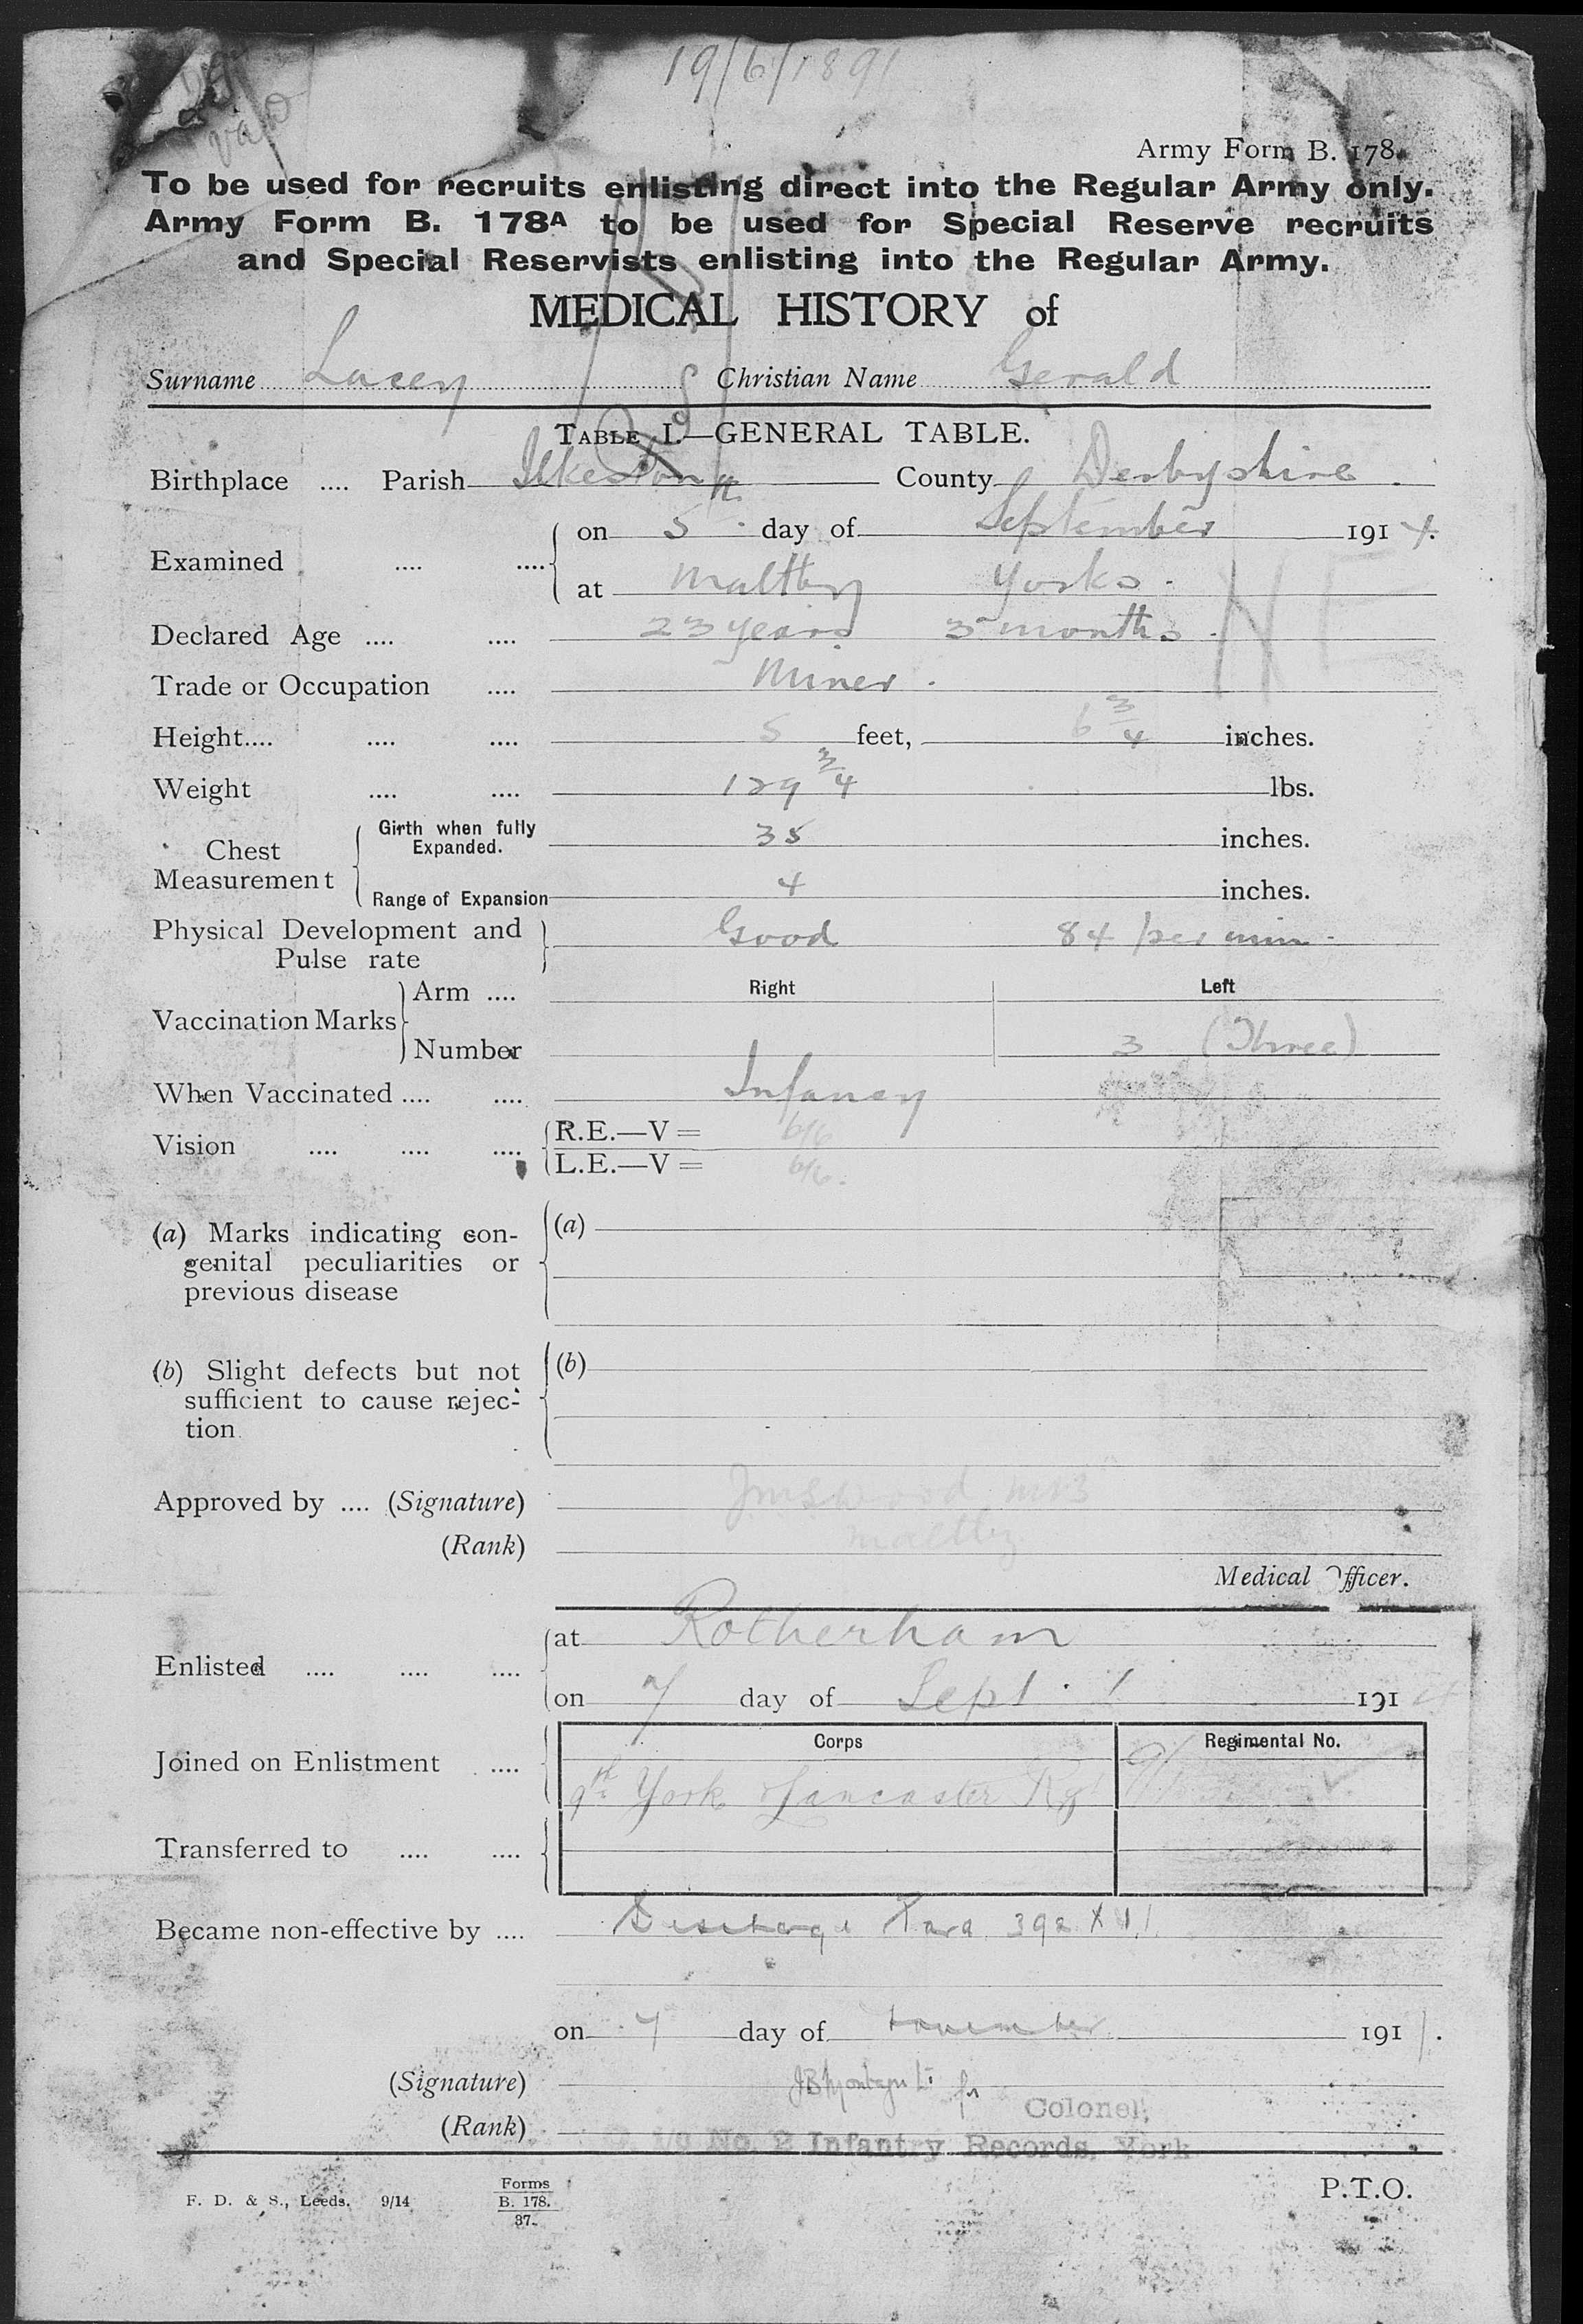 19/6/1891
Army Form B. 178.
To be used for recruits enlisting direct into the Regular Army only.
Army Form B. 178A to be used for Special Reserve recruits
and Special Reservists enlisting into the Regular Army.
MEDICAL HISTORY of
Surname Lacey Christian Name Gerald
TABLE I.—GENERAL TABLE.
Birthplace .... Parish Ilkeston County Derbyshire
Examined .... .... on 5th day of September 1914.
at Maltby Yorks.
Declared Age .... .... 23 years 3 months.
Trade or Occupation .... Miner.
Height.... .... .... 5 feet, 6 3/4 inches.
Weight .... .... 129 3/4 lbs.
Chest Measurement Girth when fully Expanded. 35 inches.
Range of Expansion 4 inches.
Physical Development and Pulse rate Good 84 per min.
Vaccination Marks Arm .... Right Left
Number 3 (Three)
When Vaccinated .... .... Infancy
Vision .... .... .... R.E.—V = 6/6
L.E.—V = 6/6.
(a) Marks indicating con- (a)
genital peculiarities or
previous disease
(b) Slight defects but not (b)
sufficient to cause rejec-
tion
Approved by .... (Signature)
(Rank) Maltby
Medical Officer.
Enlisted .... .... .... at Rotherham
on 7 day of Sept. 1914
Corps Regimental No.
Joined on Enlistment .... 9th York & Lancaster Rg
Transferred to .... ....
Became non-effective by .... Discharge Para 392 XVI.
on 7 day of November 191
(Signature) JB Montagu Lt. for
Colonel,
(Rank) i/c No. 2 Infantry Records, York
F. D. & S., Leeds. 9/14 Forms
B. 178.
37.
P.T.O.